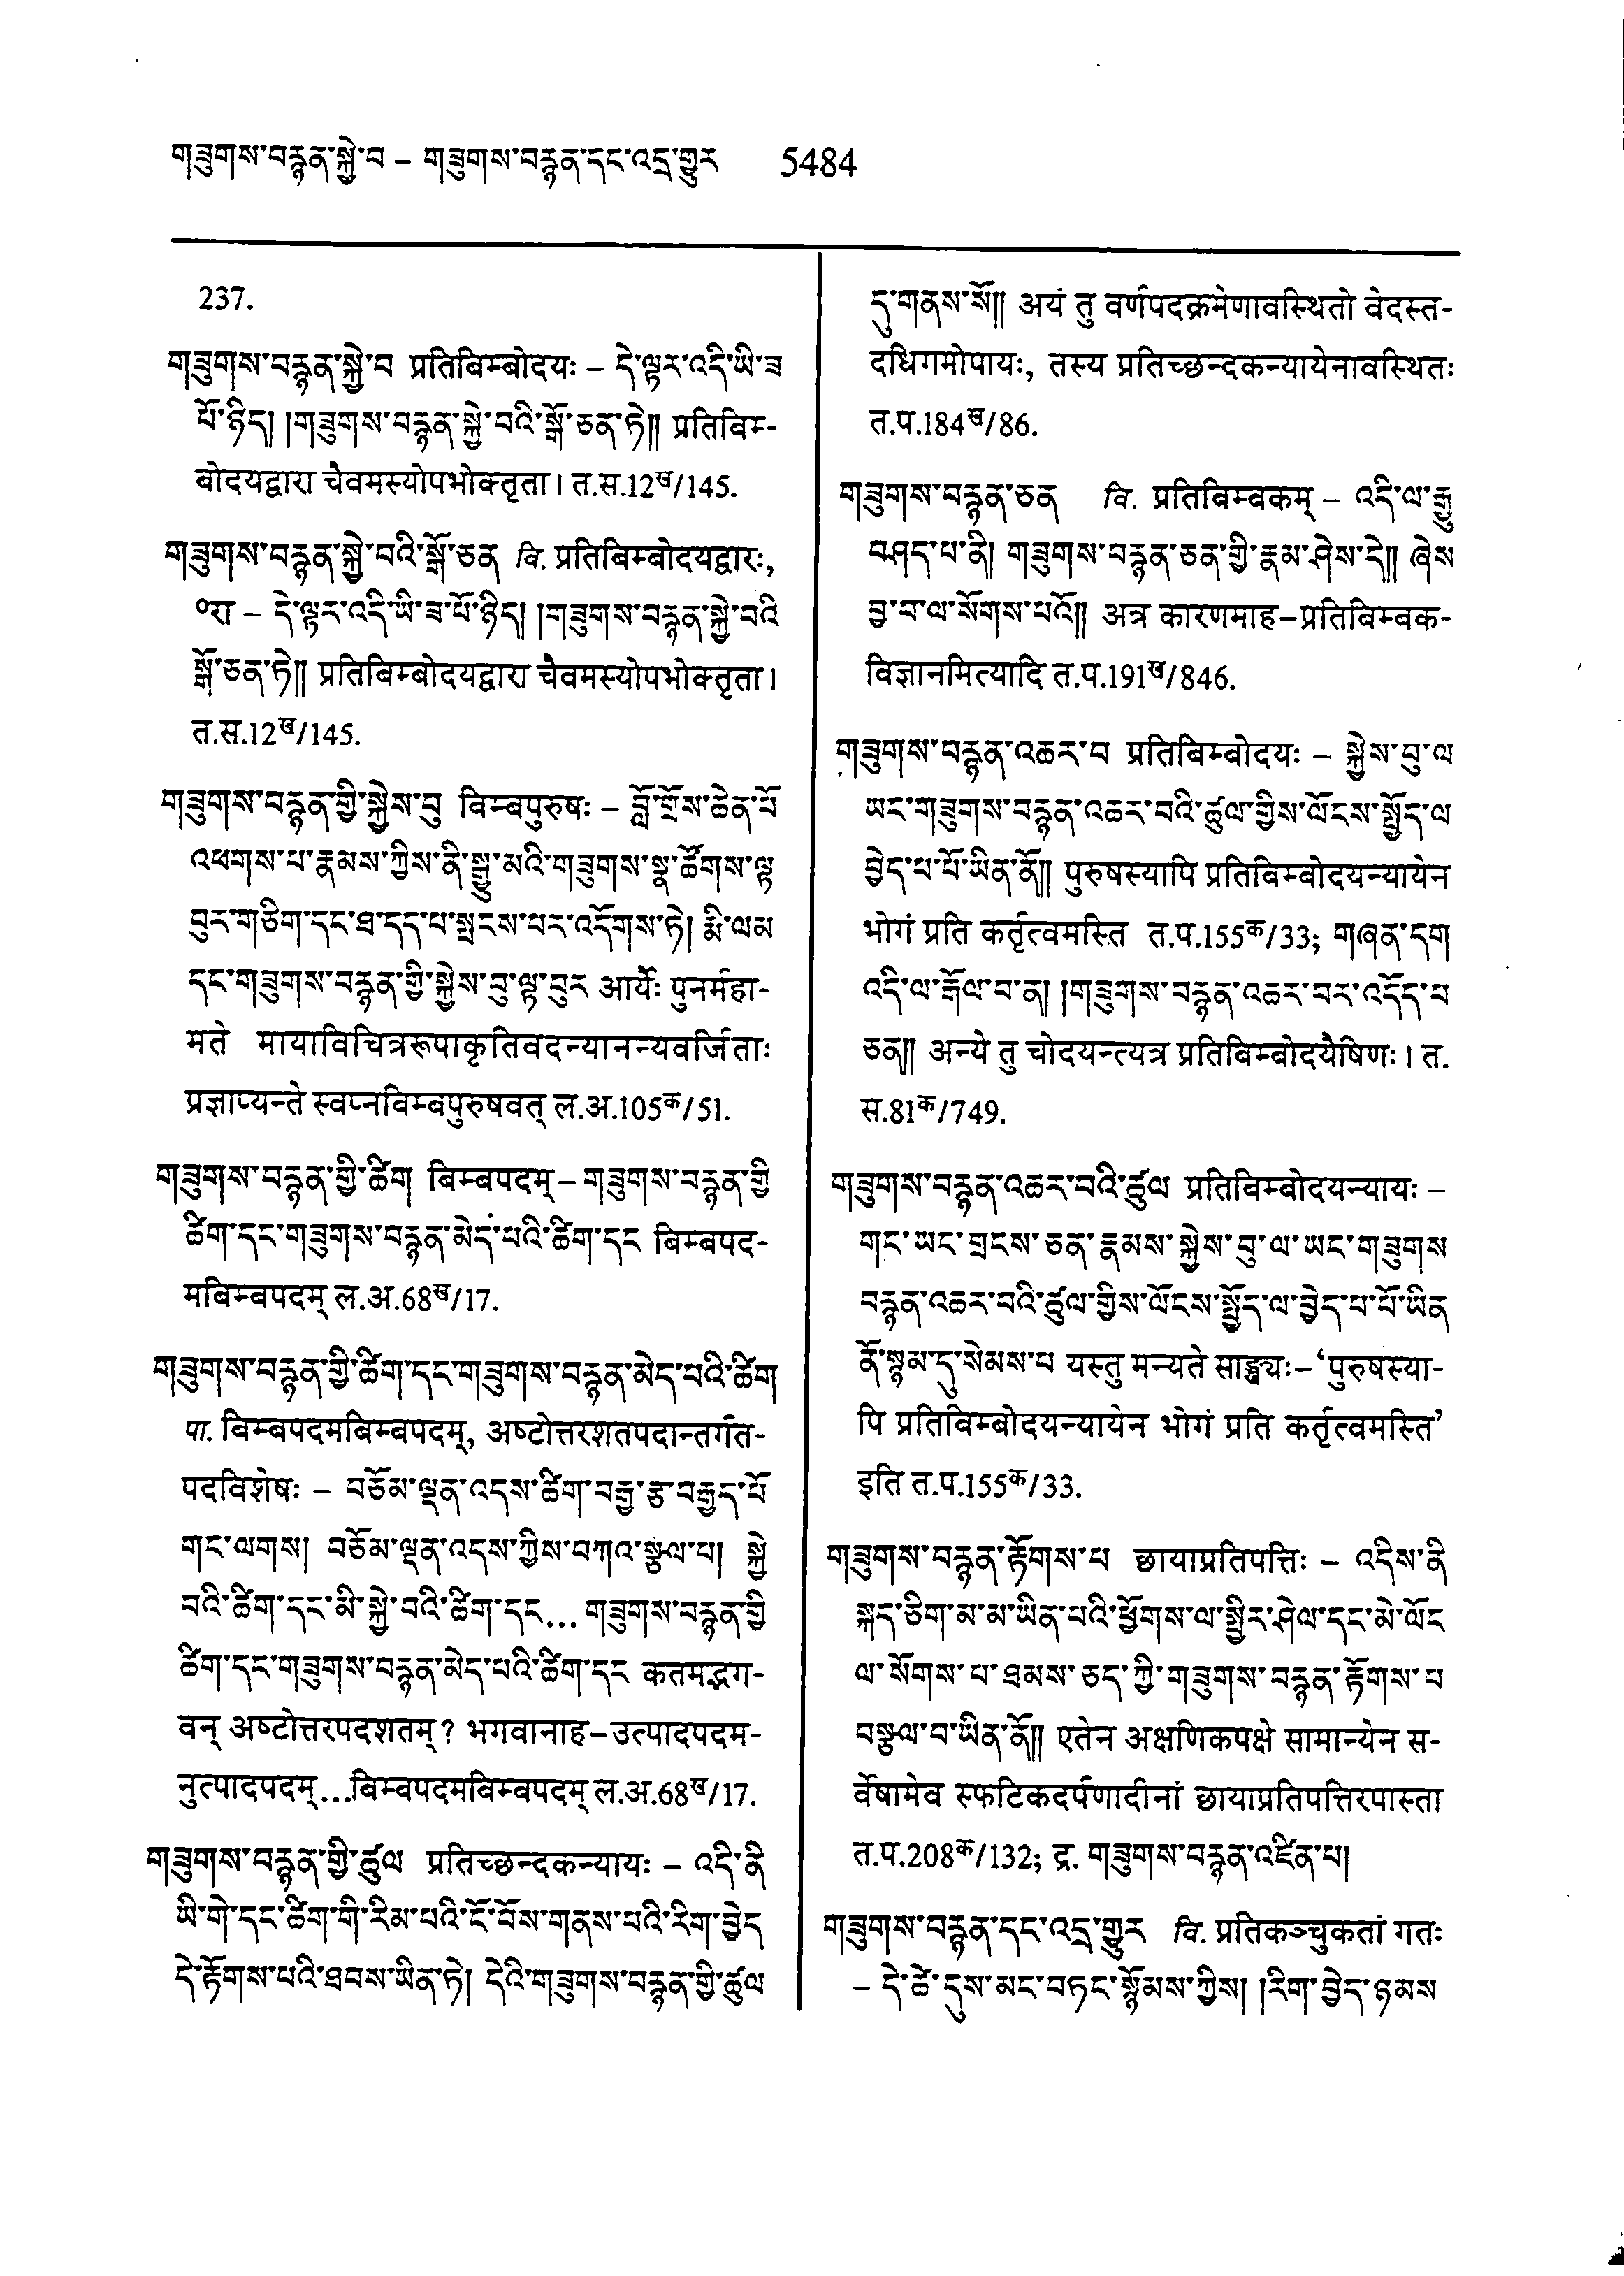 གཟུགས་བརྙན་སྐྱེ་བ – གཟུགས་བརྙན་དང་འདྲ་གྱུར 5484
237.
གཟུགས་བརྙན་སྐྱེ་བ प्रतिबिम्बोदयः – དེ་ལྟར་འདི་ཡི་ཟ
པོ་ཉིད། །གཟུགས་བརྙན་སྐྱེ་བའི་སྒོ་ཅན་ཏེ།། प्रतिबिम-
बोदयद्वारा चैवमस्योपभोक्तृता। त.स.12ख/145.
གཟུགས་བརྙན་སྐྱེ་བའི་སྒོ་ཅན वि. प्रतिबिम्बोदयद्वारः,
०रा – དེ་ལྟར་འདི་ཡི་ཟ་པོ་ཉིད། །གཟུགས་བརྙན་སྐྱེ་བའི
སྒོ་ཅན་ཏེ།། प्रतिबिम्बोदयद्वारा चैवमस्योपभोक्तृता।
त.स.12ख/145.
གཟུགས་བརྙན་གྱི་སྐྱེས་བུ बिम्बपुरुषः – བློ་གྲོས་ཆེན་པོ
འཕགས་པ་རྣམས་ཀྱིས་ནི་སྒྱུ་མའི་གཟུགས་སྣ་ཚོགས་ལྟ
བུར་གཅིག་དང་ཐ་དད་པ་སྤངས་པར་འདོགས་ཏེ། རྨི་ལམ
དང་གཟུགས་བརྙན་གྱི་སྐྱེས་བུ་ལྟ་བུར आर्यैः पुनर्महा-
मते मायाविचित्ररूपाकृतिवदन्यानन्यवर्जिताः
प्रज्ञाप्यन्ते स्वप्नबिम्बपुरुषवत् ल.अ.105क/51.
གཟུགས་བརྙན་གྱི་ཚིག बिम्बपदम् – གཟུགས་བརྙན་གྱི
ཚིག་དང་གཟུགས་བརྙན་མེད་པའི་ཚིག་དང बिम्बपद-
मबिम्बपदम् ल.अ.68ख/17.
གཟུགས་བརྙན་གྱི་ཚིག་དང་གཟུགས་བརྙན་མེད་པའི་ཚིག
पा. बिम्बपदमबिम्बपदम्, अष्टोत्तरशतपदान्तर्गत-
पदविशेषः – བཅོམ་ལྡན་འདས་ཚིག་བརྒྱ་རྩ་བརྒྱད་པོ
གང་ལགས། བཅོམ་ལྡན་འདས་ཀྱིས་བཀའ་སྩལ་པ། སྐྱེ
བའི་ཚིག་དང་མི་སྐྱེ་བའི་ཚིག་དང... གཟུགས་བརྙན་གྱི
ཚིག་དང་གཟུགས་བརྙན་མེད་པའི་ཚིག་དང कतमद्भग-
वन् अष्टोत्तरपदशतम्? भगवानाह–उत्पादपदम-
नुत्पादपदम्...बिम्बपदमबिम्बपदम् ल.अ.68ख/17.
གཟུགས་བརྙན་གྱི་ཚུལ प्रतिच्छन्दकन्यायः – འདི་ནི
ཡི་གེ་དང་ཚིག་གི་རིམ་པའི་ངོ་བོས་གནས་པའི་རིག་བྱེད
དེ་རྟོགས་པའི་ཐབས་ཡིན་ཏེ། དེའི་གཟུགས་བརྙན་གྱི་ཚུལ
དུ་གནས་སོ།། अयं तु वर्णपदक्रमेणावस्थितो वेदस्त-
दधिगमोपायः, तस्य प्रतिच्छन्दकन्यायेनावस्थितः
त.प.184ख/86.
གཟུགས་བརྙན་ཅན वि. प्रतिबिम्बकम् – འདི་ལ་རྒྱུ
བཤད་པ་ནི། གཟུགས་བརྙན་ཅན་གྱི་རྣམ་ཤེས་དེ།། ཞེས
བྱ་བ་ལ་སོགས་པའོ།། अत्र कारणमाह–प्रतिबिम्बक-
विज्ञानमित्यादि त.प.191ख/846.
གཟུགས་བརྙན་འཆར་བ प्रतिबिम्बोदयः – སྐྱེས་བུ་ལ
ཡང་གཟུགས་བརྙན་འཆར་བའི་ཚུལ་གྱིས་ལོངས་སྤྱོད་ལ
བྱེད་པ་པོ་ཡིན་ནོ།། पुरुषस्यापि प्रतिबिम्बोदयन्यायेन
भोगं प्रति कर्तृत्वमस्ति त.प.155क/33; གཞན་དག
འདི་ལ་རྒོལ་བ་ན། །གཟུགས་བརྙན་འཆར་བར་འདོད་པ
ཅན།། अन्ये तु चोदयन्त्यत्र प्रतिबिम्बोदयैषिणः। त.
स.81क/749.
གཟུགས་བརྙན་འཆར་བའི་ཚུལ प्रतिबिम्बोदयन्यायः –
གང་ཡང་གྲངས་ཅན་རྣམས་སྐྱེས་བུ་ལ་ཡང་གཟུགས
བརྙན་འཆར་བའི་ཚུལ་གྱིས་ལོངས་སྤྱོད་ལ་བྱེད་པ་པོ་ཡིན
ནོ་སྙམ་དུ་སེམས་པ यस्तु मन्यते साङ्ख्यः–‘पुरुषस्या-
पि प्रतिबिम्बोदयन्यायेन भोगं प्रति कर्तृत्वमस्ति’
इति त.प.155क/33.
གཟུགས་བརྙན་རྟོགས་པ छायाप्रतिपत्तिः – འདིས་ནི
སྐད་ཅིག་མ་མ་ཡིན་པའི་ཕྱོགས་ལ་སྤྱིར་ཤེལ་དང་མེ་ལོང
ལ་སོགས་པ་ཐམས་ཅད་ཀྱི་གཟུགས་བརྙན་རྟོགས་པ
བསྩལ་བ་ཡིན་ནོ།། एतेन अक्षणिकपक्षे सामान्येन स-
र्वेषामेव स्फटिकदर्पणादीनां छायाप्रतिपत्तिरपास्ता
त.प.208क/132; द्र. གཟུགས་བརྙན་འཛིན་པ།
གཟུགས་བརྙན་དང་འདྲ་གྱུར वि. प्रतिकञ्चुकतां गतः
– དེ་ཚེ་དུས་མང་བཏང་སྙོམས་ཀྱིས། །རིག་བྱེད་ཉམས